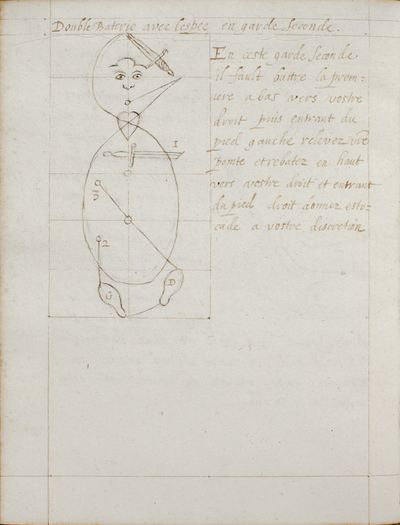 Double Baterie avec lespee en garde seconde.
En ceste garde seconde
il fault battre la prem:
iere abas vers vostre
droit puis entrant du
pied gauche relevez vre
pointe et rebatez en haut
vers vostre droit et entrant
du pied droit donnez esto:
cade a vostre discretion
1
3
2
G
D